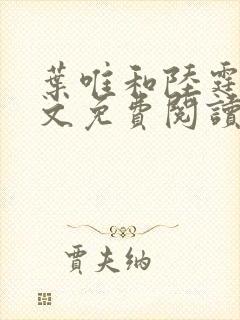 葉唯和陸霆
文免費閱讀
賈夫納